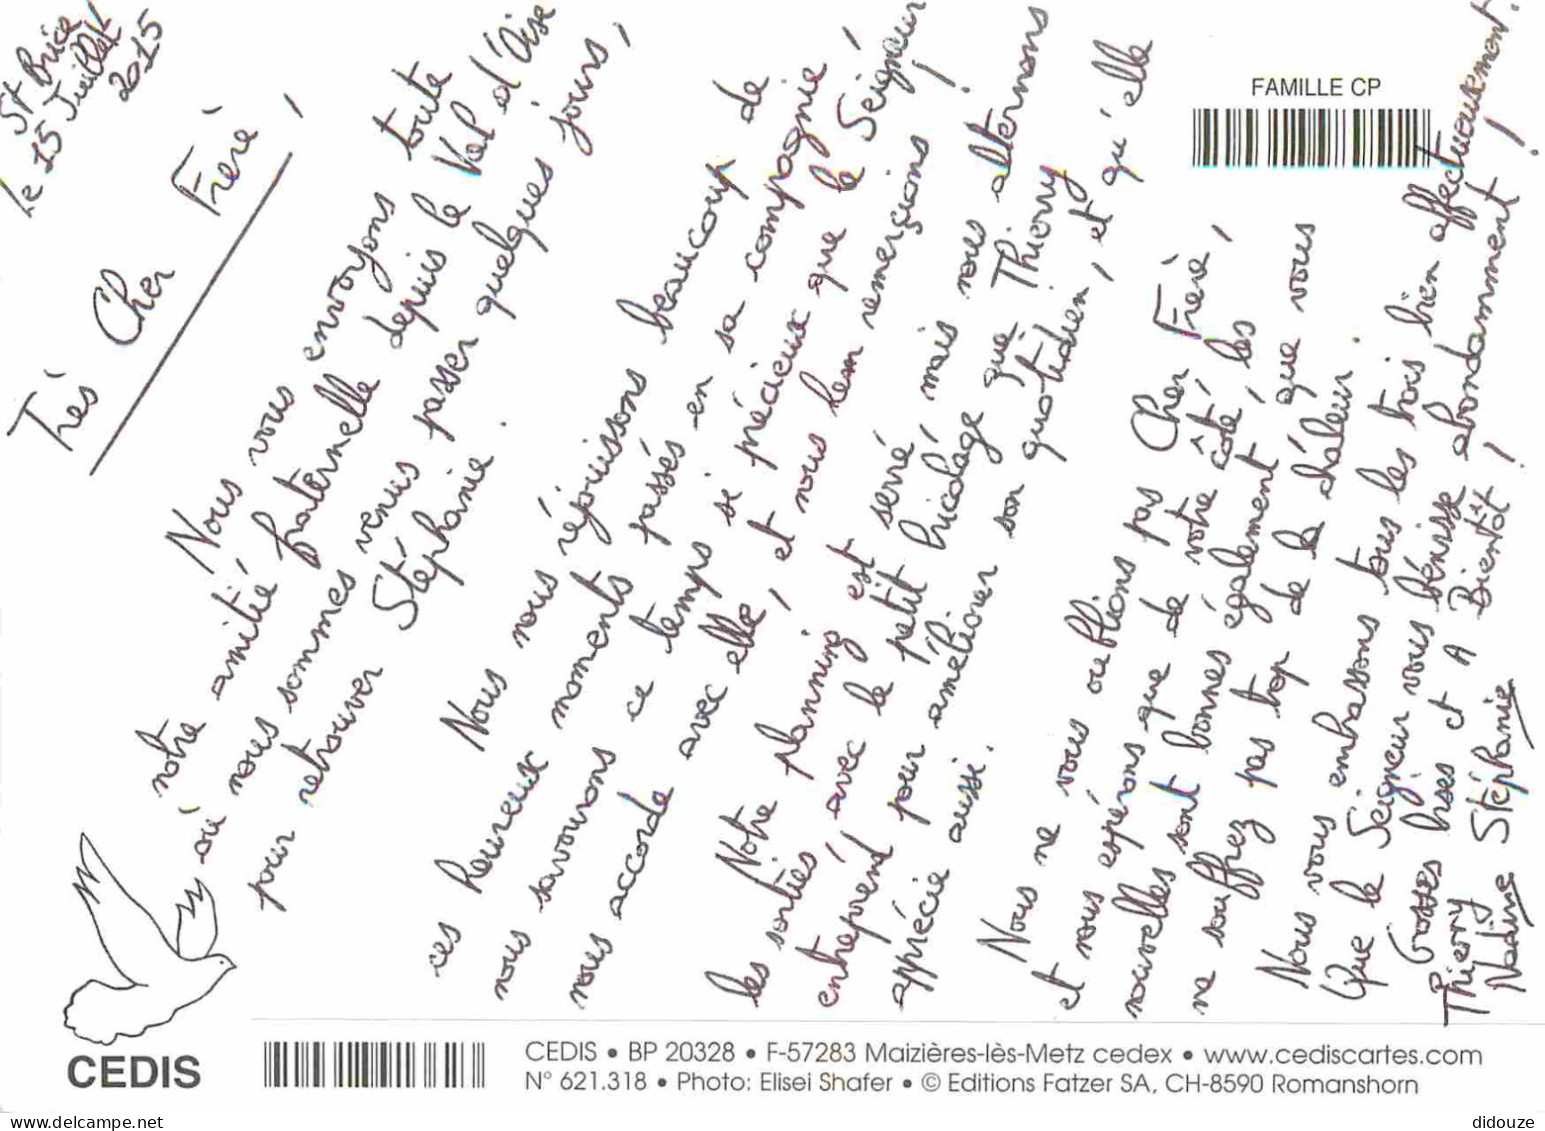 St Brice
Le 15 Juillet
2015
Très Cher Frère,
Nous vous envoyons toute
notre amitié fraternelle depuis le Val d'Oise
où nous sommes venus passer quelques jours,
pour retrouver Stéphanie.
Nous nous réjouissons beaucoup de
ces heureux moments passés en sa compagnie,
nous savourons ce temps si précieux que le Seigneur
nous accorde avec elle, et nous l'en remerçions !
Notre planning est serré, mais nous alternons
les sorties, avec le petit bricolage que Thierry
entreprend pour améliorer son quotidien, et qu'elle
apprécie aussi.
Nous ne vous oublions pas Cher Frère,
et nous espérons que de votre côté, les
nouvelles sont bonnes également, que vous
ne souffrez pas trop de la chaleur.
Nous vous embrassons tous les trois bien affectueusement.
Que le Seigneur vous bénisse abondamment !
Grosses bises et A Bientôt !
Thierry Stéphanie
Nadine
FAMILLE CP
CEDIS
CEDIS • BP 20328 • F-57283 Maizières-lès-Metz cedex • www.cediscartes.com
N° 621.318 • Photo: Elisei Shafer • © Editions Fatzer SA, CH-8590 Romanshorn
didouze